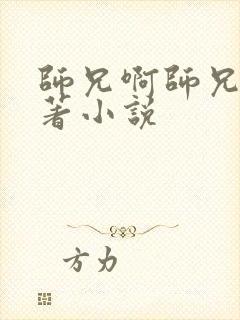 師兄啊師兄
著小説
方力